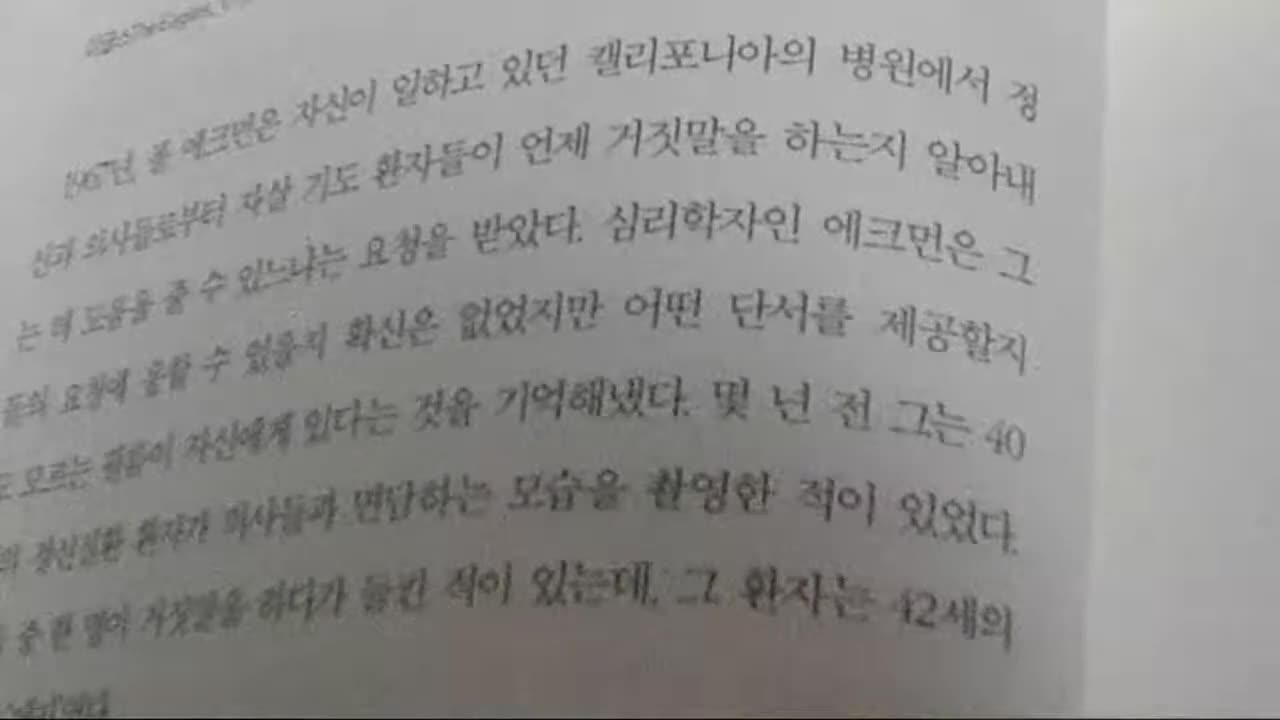 1967년 폴 에크먼은 자신이 일하고 있던 캘리포니아의 병원에서 정
신과 의사들로부터 자살 기도 환자들이 언제 거짓말을 하는지 알아내
는 데 도움을 줄 수 있느냐는 요청을 받았다. 심리학자인 에크먼은 그
들의 요청에 응할 수 있을지 확신은 없었지만 어떤 단서를 제공할지
도 모르는 필름이 자신에게 있다는 것을 기억해냈다. 몇 년 전 그는 40
의 정신질환 환자가 의사들과 면담하는 모습을 촬영한 적이 있었다.
중 한 명이 거짓말을 하다가 들킨 적이 있는데, 그 환자는 42세의